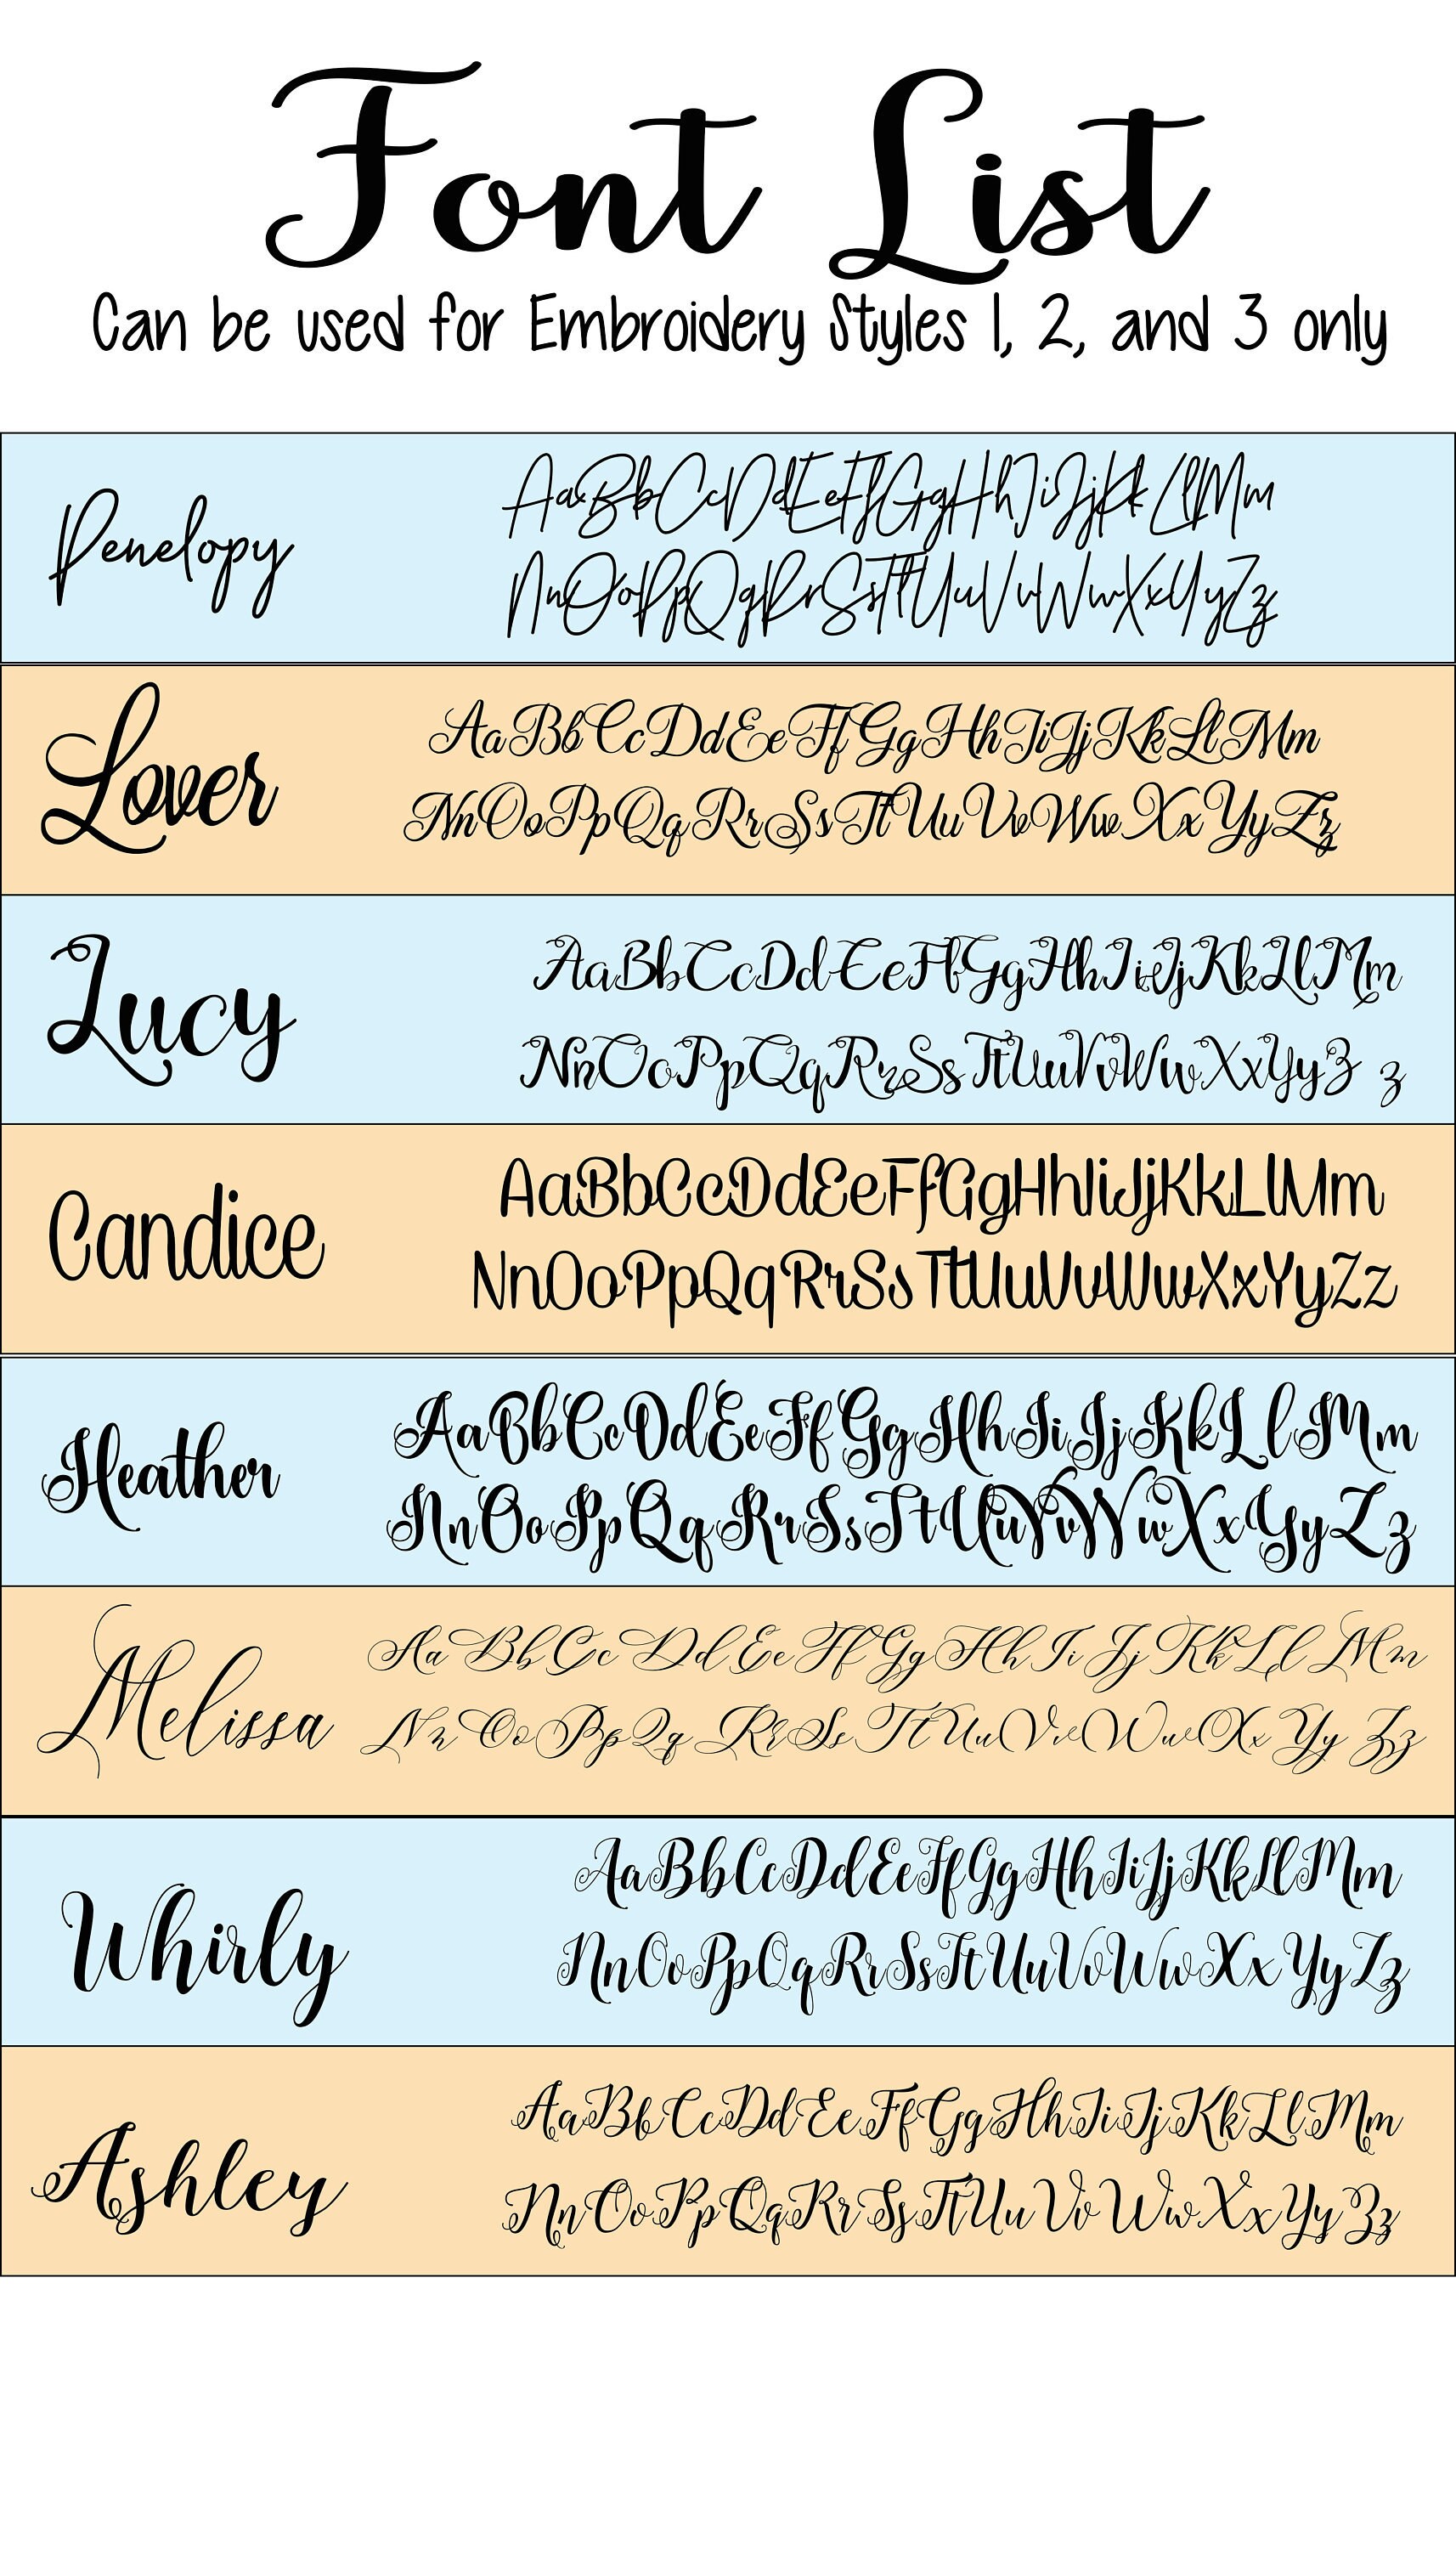 Font List
Can be used for Embroidery Styles 1, 2, and 3 only
Penelopy
AaBbCcDdEeFfGgHhIiJjKkLlMm
NnOoPpQqRrSsTtUuVvWwXxYyZz
Lover
AaBbCcDdEeFfGgHhIiJjKkLlMm
NnOoPpQqRrSsTtUuVvWwXxYyZz
Lucy
AaBbCcDdEeFfGgHhIiJjKkLlMm
NnOoPpQqRrSsTtUuVvWwXxYyZ z
Candice
AaBbCcDdEeFfGgHhIiJjKkLlMm
NnOoPpQqRrSsTtUuVvWwXxYyZz
Heather
AaBbCcDdEeFfGgHhIiJjKkLlMm
NnOoPpQqRrSsTtUuVvWwXxYyZz
Melissa
Aa Bb Cc Dd Ee Ff Gg Hh Ii Jj Kk Ll Mm
Nn Oo Pp Qq Rr Ss Tt Uu Vv Ww Xx Yy Zz
Whirly
AaBbCcDdEeFfGgHhIiJjKkLlMm
NnOoPpQqRrSsTtUuVvWwXxYyZz
Ashley
AaBbCcDdEeFfGgHhIiJjKkLlMm
NnOoPpQqRrSsTtUuVvWwXxYyZz